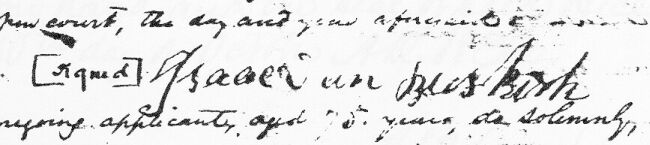 pen court, the day and year aforesaid
[signed] Isaac van buskirk
oregoing applicant, aged 75 years, do solemnly,